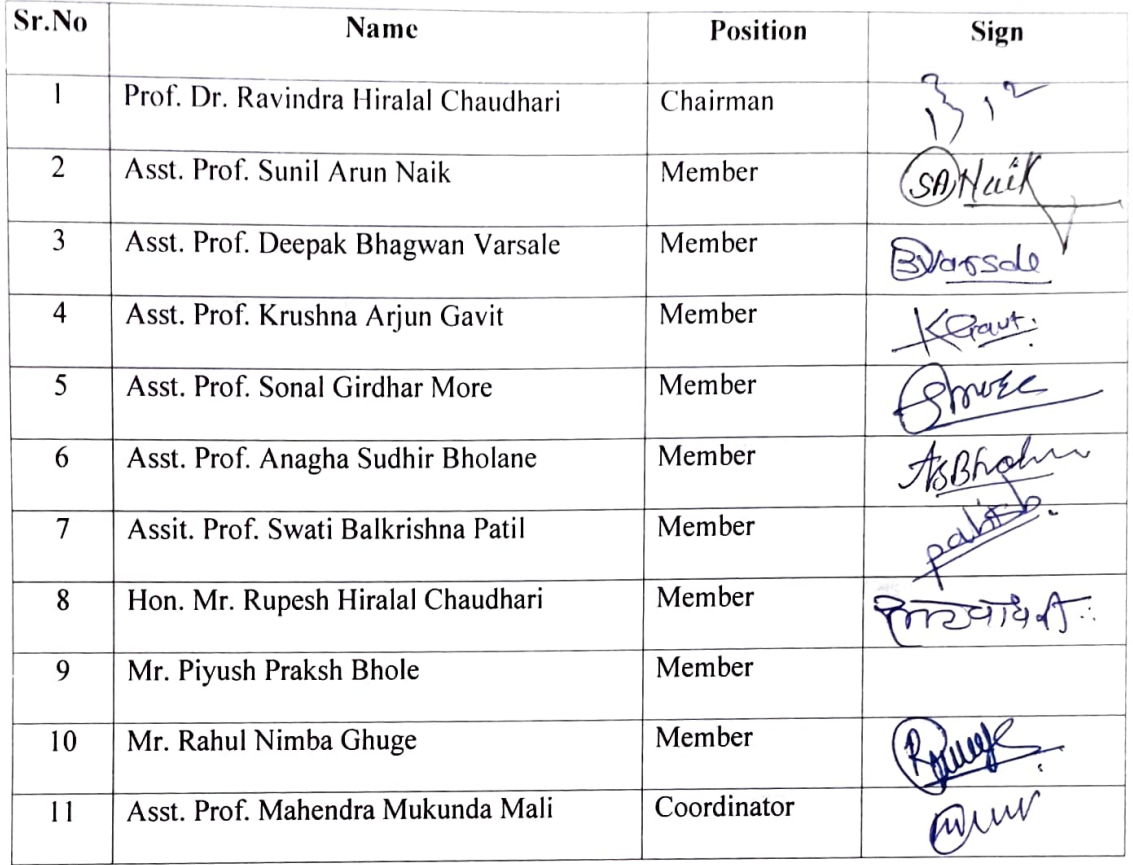 Sr.No Name Position Sign
1 Prof. Dr. Ravindra Hiralal Chaudhari Chairman
2 Asst. Prof. Sunil Arun Naik Member SANaik
3 Asst. Prof. Deepak Bhagwan Varsale Member BVarsale
4 Asst. Prof. Krushna Arjun Gavit Member
5 Asst. Prof. Sonal Girdhar More Member
6 Asst. Prof. Anagha Sudhir Bholane Member
7 Assit. Prof. Swati Balkrishna Patil Member
8 Hon. Mr. Rupesh Hiralal Chaudhari Member
9 Mr. Piyush Praksh Bhole Member
10 Mr. Rahul Nimba Ghuge Member
11 Asst. Prof. Mahendra Mukunda Mali Coordinator